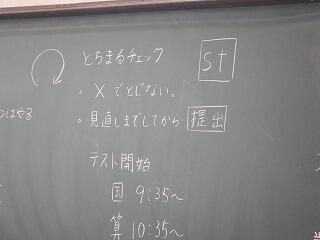 とちまるチェック
st
・×でとじない。
・見直しまでしてから 提出
はやる
テスト開始
国 9:35～
算 10:35～